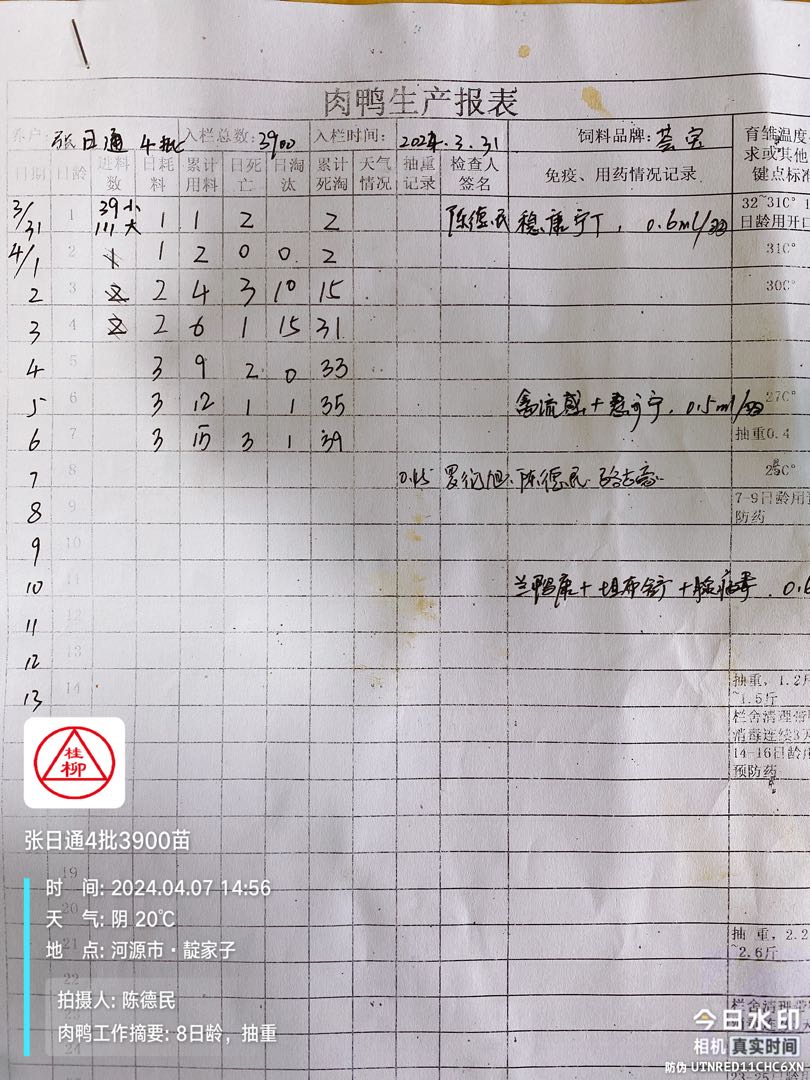 肉鸭生产报表
养户: 张日通 4批 入栏总数: 3900 入栏时间: 2024.3.31 饲料品牌: 育雏温度
求或其他
键点标准
日期 日龄 进料数 日耗料 累计用料 日死亡 日淘汰 累计死淘 天气情况 抽重记录 检查人签名 免疫、用药情况记录
3/31 1 39小 111大 1 1 2 2 陈德民 稳康宁丁, 0.6ml/羽 32~31C° 1
日龄用开口
4/1 2 1 2 0 0 2 31C°
2 3 2 4 3 10 15 30C°
3 4 2 6 1 15 31
4 5 3 9 2 0 33
5 6 3 12 1 1 35 禽流感+ 0.5ml/羽 27C°
6 7 3 15 3 1 39 抽重0.4
7 8 0.45 陈德民 C°
8 9 7-9日龄用
防药
9 10
10 11 0.6
11 12
12 13
13 14 抽重, 1.2斤
~1.5斤
栏舍清理
消毒连续3天
14-16日龄
预防药
桂
柳
张日通4批3900苗
19
时 间: 2024.04.07 14:56
20
天 气: 阴 20℃
21
地 点: 河源市·靛家子
抽 重, 2.2
~2.6斤
22
拍摄人: 陈德民
栏舍清理
肉鸭工作摘要: 8日龄，抽重
24
今日水印
相机 真实时间
防伪 UTNRED11CHC6XN